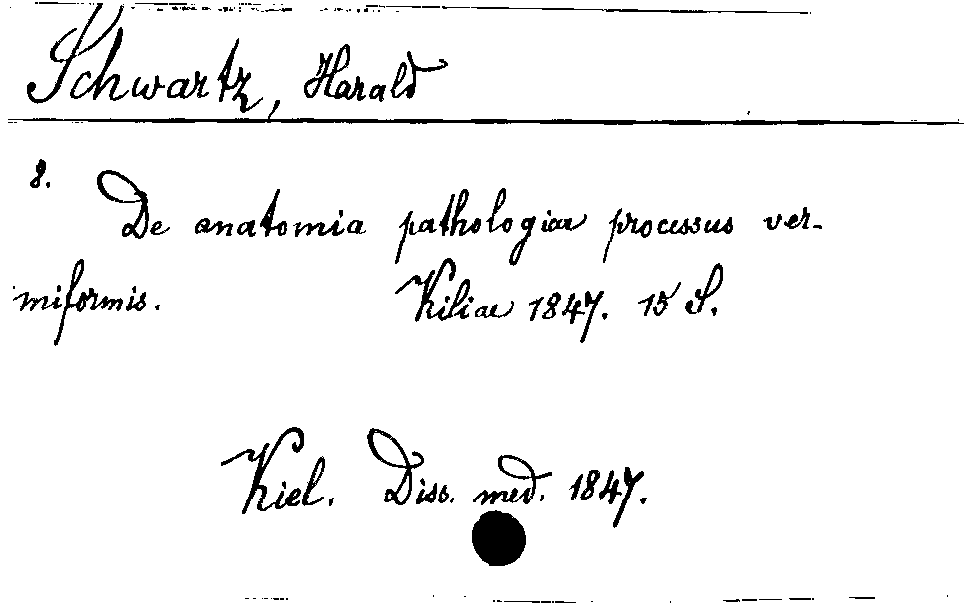 Schwartz, Harald
8.
De anatomia pathologiae processus ver-
miformis. Kiliae 1847. 15 S.
Kiel. Diss. med. 1847.